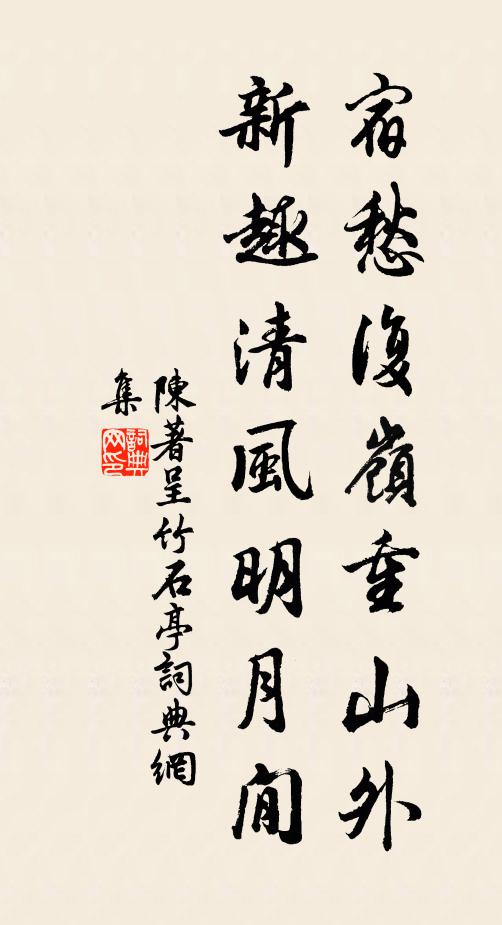 宿愁復嶺重山外
新趣清風明月間
陳著呈竹石亭詞典網
集
詞典網印